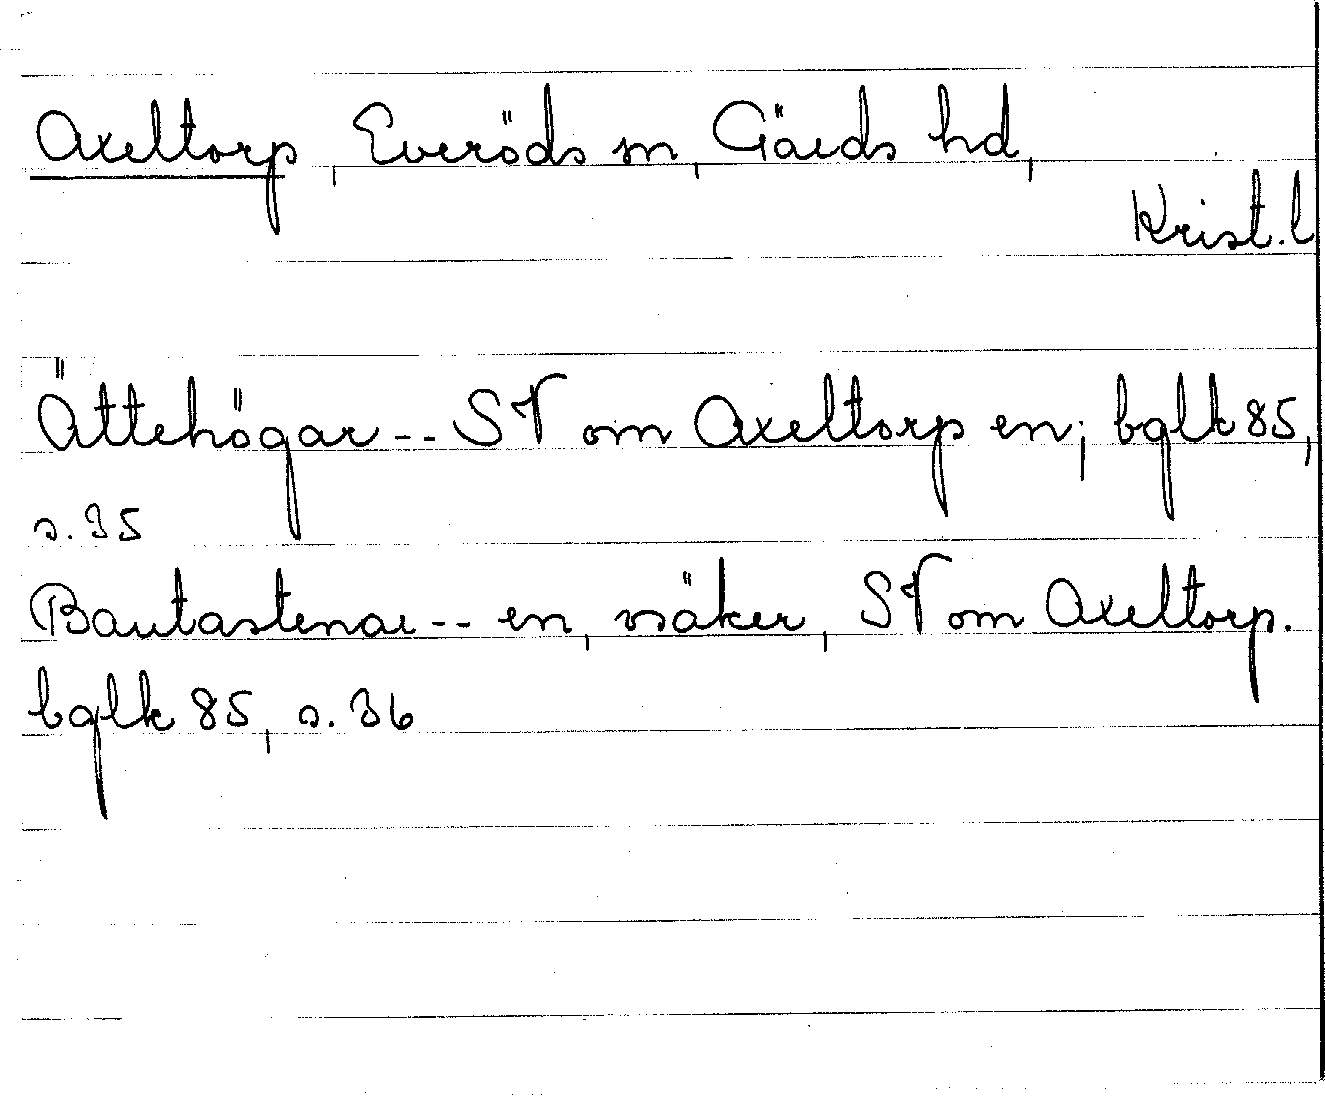 Axeltorp, Everöds sn, Gärds hd,
Krist. l
Ättehögar -- SV om Axeltorp en; bglk 85,
s. 35
Bautastenar -- en, osäker, SV om Axeltorp.
bglk 85, s. 36